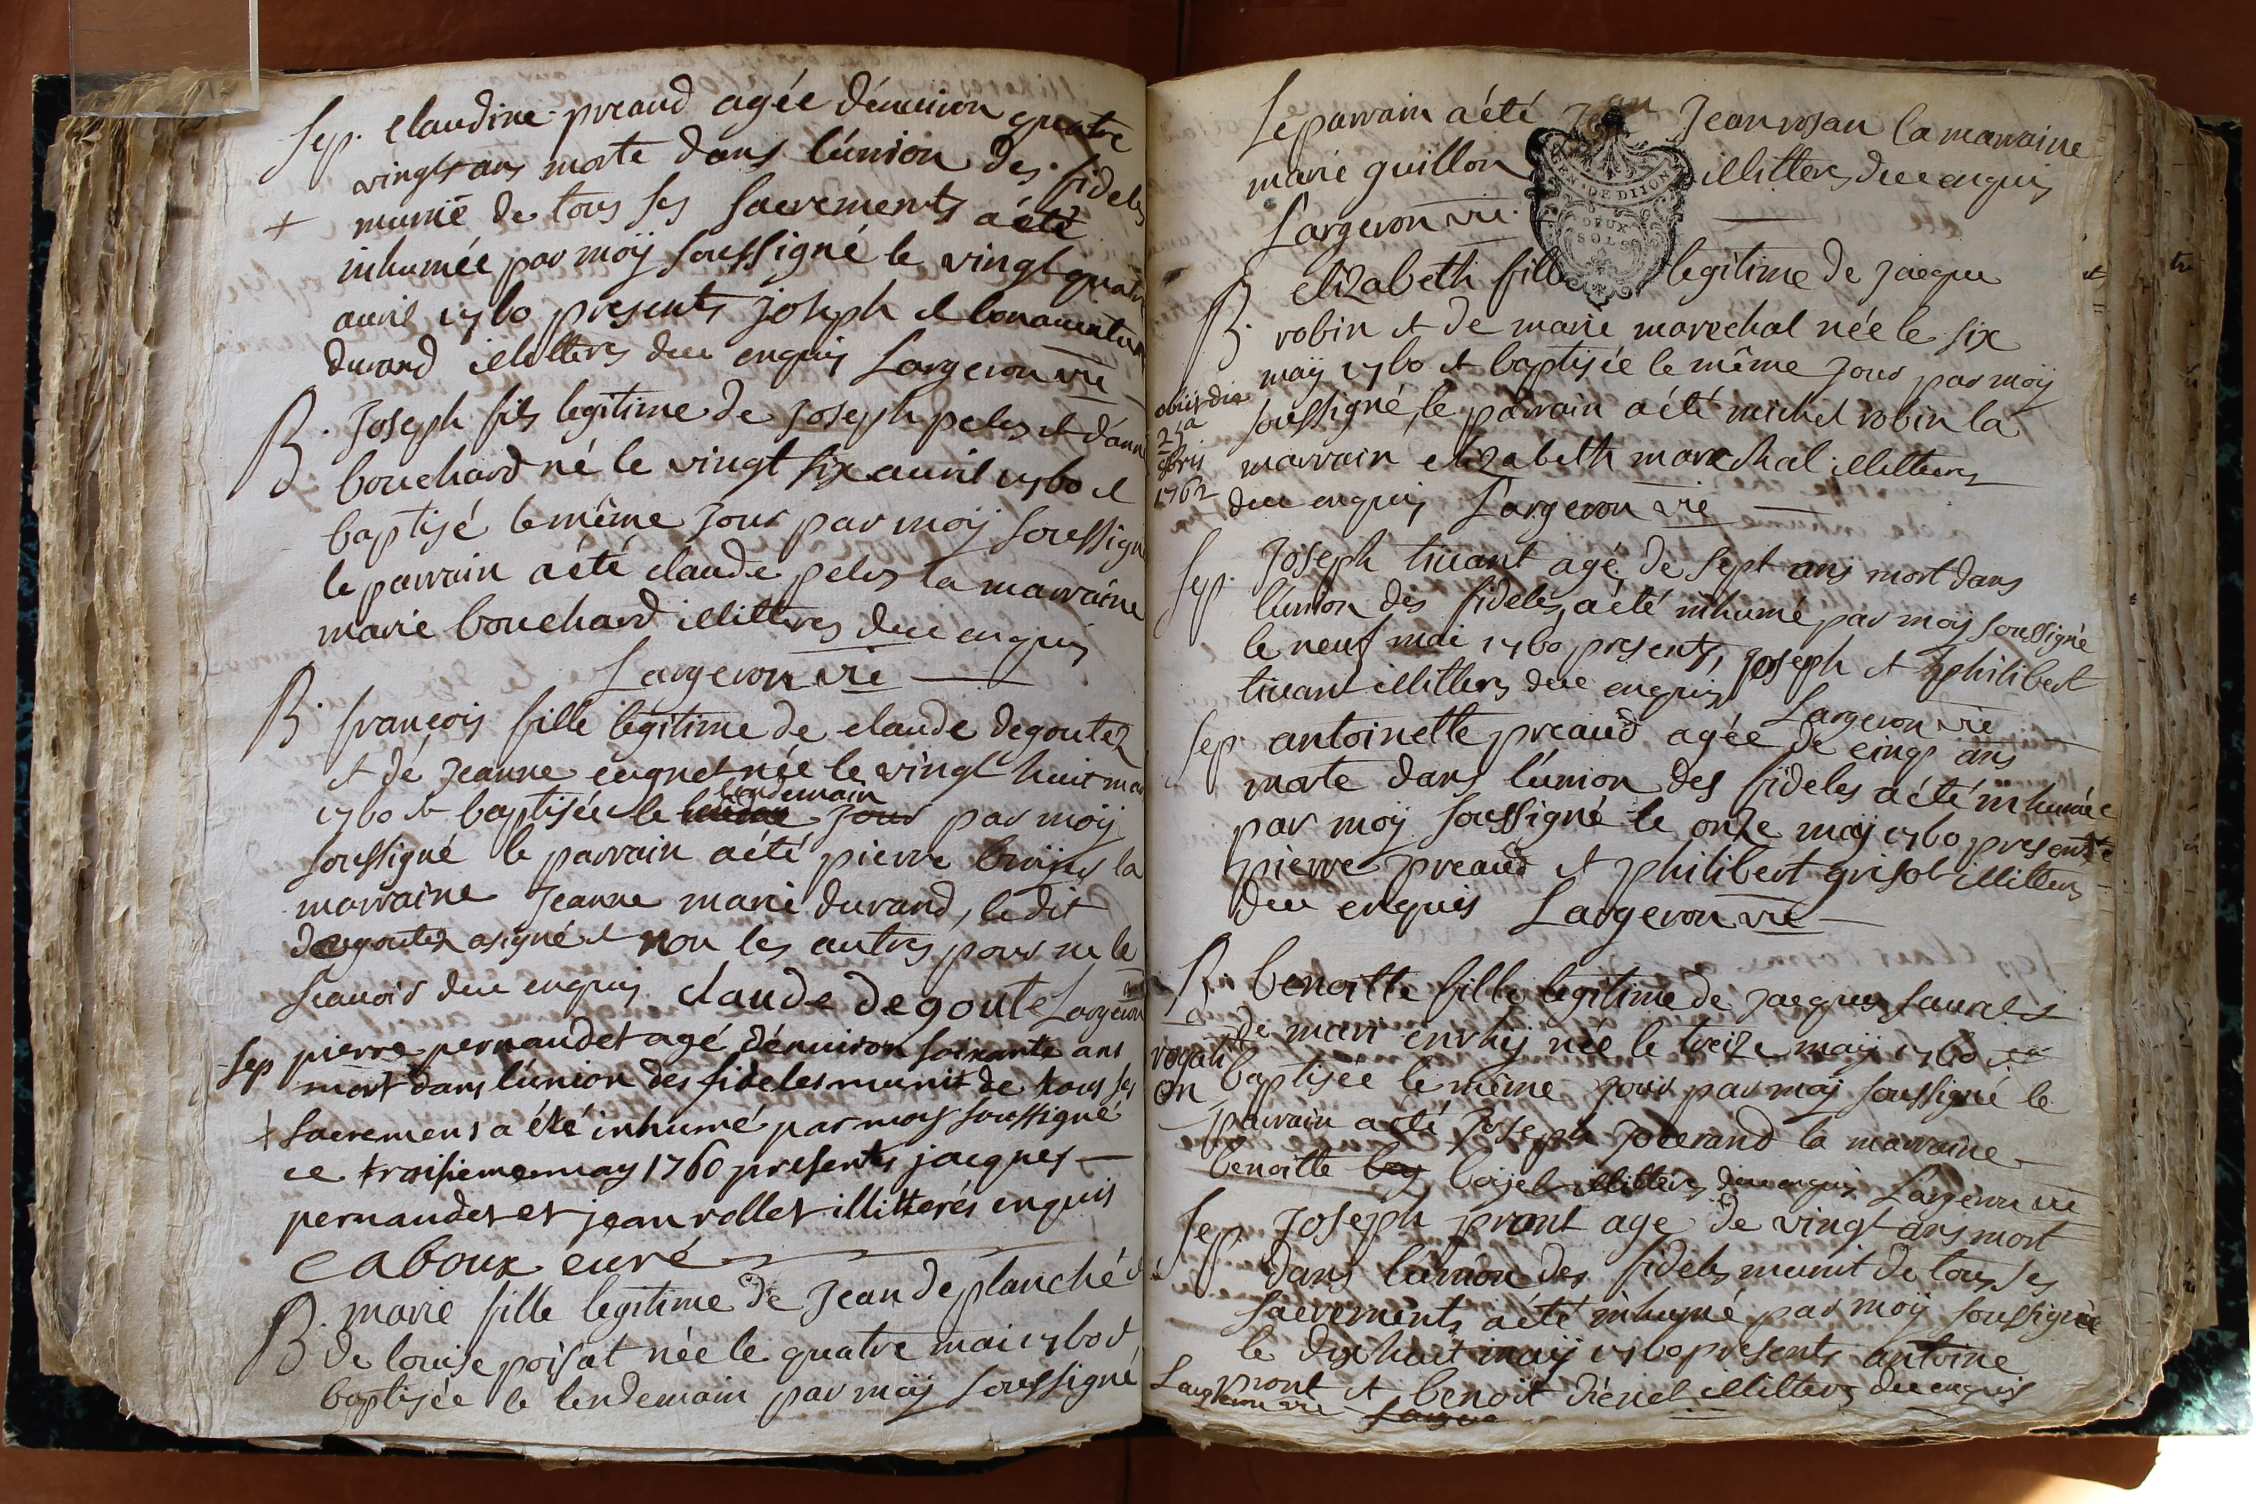 Sep. claudine preaud agée d'environ quatre
vingts ans morte dans l'union des fideles
+ munie de tous ses sacrements a été
inhumée par moÿ soussigné le vingt quatre
avril 1760 presents joseph et bonaventure
durand illittres due enquis Largeron vic
B. Joseph fils legitime de Joseph pelos et d'anne
bouchard né le vingt six avril 1760 et
baptisé le même jour par moÿ soussigné
le parrain a été claude pelos la marraine
marie bouchard illittres due enquis
Largeron vic
B. françois fille legitime de claude degoutez
et de Jeanne née le vingt huit
1760 et baptisée le lendemain jour par moÿ
soussigné le parrain a été pierre la
marraine Jeanne marie durand, le dit
degoutez a signé et non les autres pour ne le
scavoir due enquis claude degoute Largeron
Sep pierre pernaudet agé d'environ soixante ans
mort dans l'union des fideles munit de tous ses
+ sacremens a été inhumé par moy soussigné
ce troisieme may 1760 presents jacques
pernaudet et jean rollet illitterés enquis
caboux curé
B. marie fille legitime de Jean deplanché et
de louise poisat née le quatre mai 1760 et
baptisée le lendemain par moÿ soussigné
Le parrain a été Jean Jean rosan la marraine
marie guillon illittres due enquis
Largeron vic.
GEN. DE DIJON
DEUX
SOLS
B. elizabeth fille legitime de jacque
robin et de marie marechal née le six
maÿ 1760 et baptisée le même jour par moÿ
obiit die
25a
9bris
1762
soussigné, le parrain a été michel robin la
marrain elizabeth marechal illittres
due enquis Largeron vic
Sep. Joseph tivant agé de sept ans mort dans
l'union des fideles, a été inhumé par moÿ soussigné
le neuf mai 1760 presents, joseph et philibert
tivant illittres due enquis Largeron vic
Sep. antoinette preaud agée de cinq ans
morte dans l'union des fideles a été inhumée
par moÿ soussigné le onze maÿ 1760 presents
pierre preaud et philibert grisot illittres
due enquis Largeron vic
B. benoitte fille legitime de jacques et
de mari née le treize maÿ 1760 et a
baptisée le même jour par moÿ soussigné le
parrain a été Joseph la marraine
benoitte illittres due enquis Largeron vic
Sep Joseph pront agé de vingt ans mort
dans l'union des fideles munit de tous ses
sacrements a été inhumé par moÿ soussigné
le dix huit maÿ 1760 presents antoine
pront et benoit illittres due enquis
Largeron vic